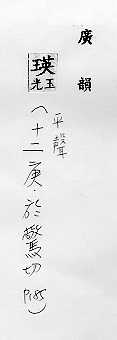 廣韻
瑛玉光
平聲
(十二庚.於驚切 P185)